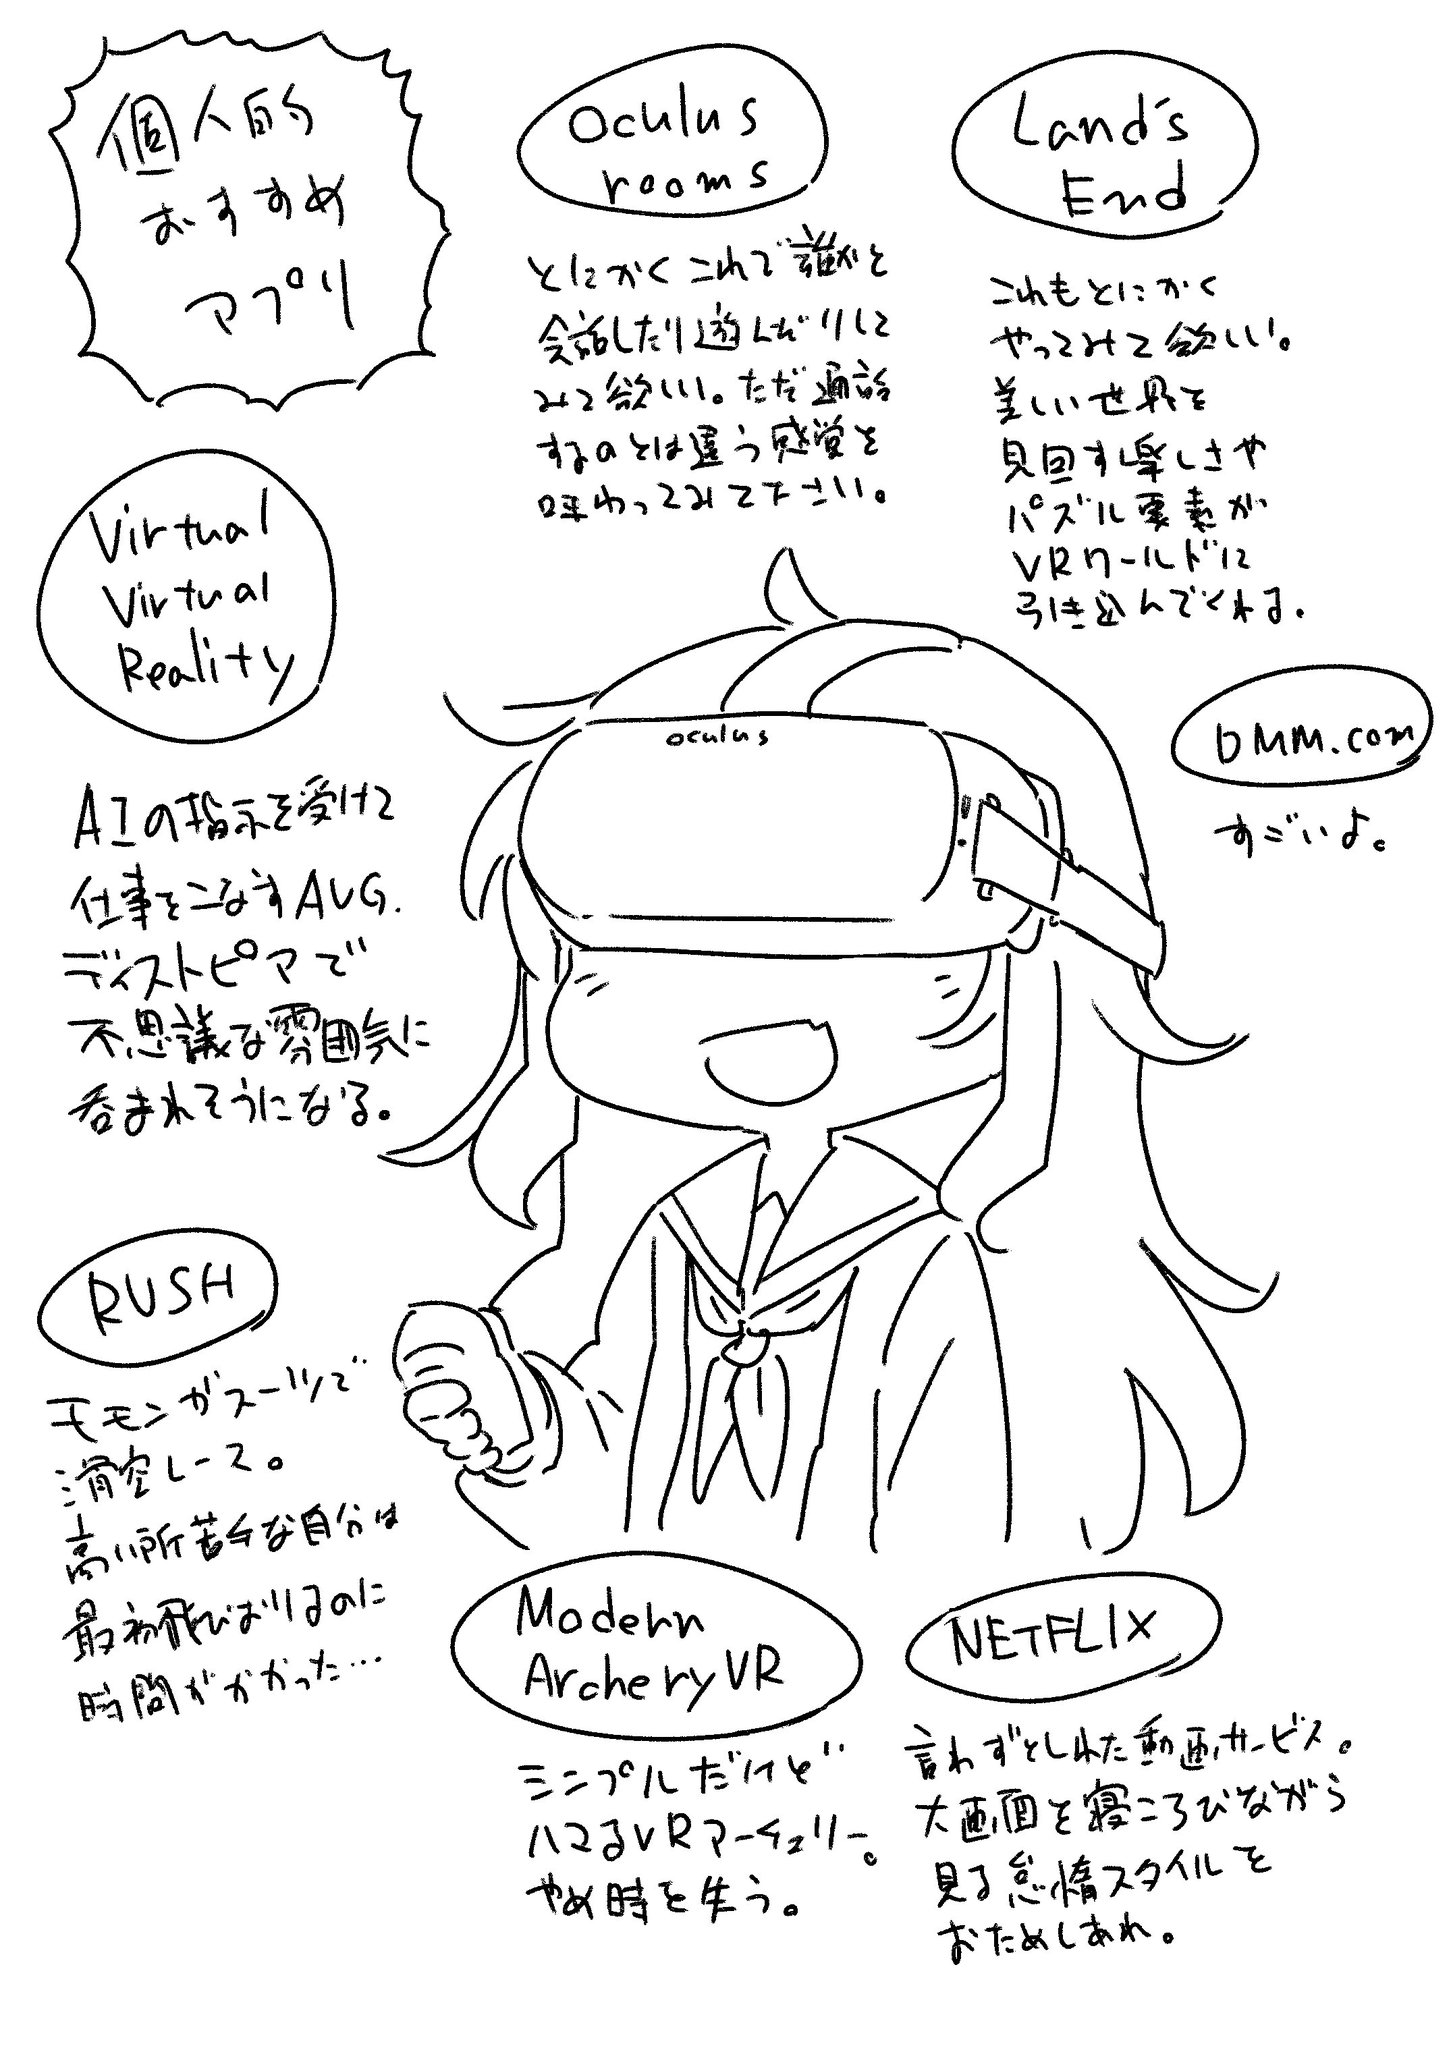 個人的
おすすめ
アプリ
Oculus
rooms
とにかくこれで誰かと
会話したり遊んだりして
みて欲しい。ただ通話
するのとは違う感覚を
味わってみて下さい。
Land's
End
これもとにかく
やってみて欲しい。
美しい世界を
見回す楽しさや
パズル要素が
VRワールドに
引き込んでくれる。
Virtual
Virtual
Reality
AIの指示を受けて
仕事をこなすAVG.
ディストピアで
不思議な雰囲気に
呑まれそうになる。
oculus
DMM.com
すごいよ。
RUSH
モモンガスーツで
滑空レース。
高い所苦手な自分は
最初飛びおりるのに
時間がかかった…
Modern
Archery VR
シンプルだけど
ハマるVRアーチェリー。
やめ時を失う。
NETFLIX
言わずとしれた動画サービス。
大画面を寝ころびながら
見る怠惰スタイルを
おためしあれ。